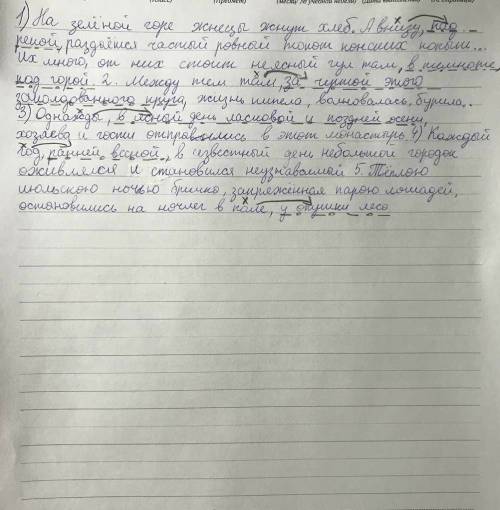 1) На зелёной горе жнецы жнут хлеб. А внизу, под
рекой, раздаётся частый ровной топот конских копыт...
Их много, от них стоит неясный гул там, в темноте,
над горой. 2. Между тем там, за чертой этого
заколдованного круга, жизнь кипела, волновалась, бурила..
3) Однажды, в ясной день ласковой и поздней осени,
хозяева и гости отправились в этот монастырь. 4) Каждый
год, ранней весной, в известный день небольшой городок
оживлялся и становился неузнаваемой 5. Тёплою
июльскою ночью бричка, запряженная парою лошадей,
остановились на ночлег в поле, у опушки леса